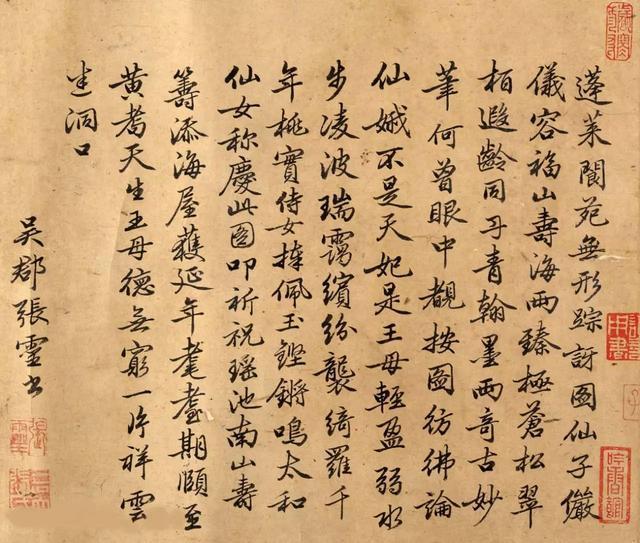 蓬萊閬苑無形踪訝圖仙子儼
儀容福山壽海兩臻極蒼松翠
栢遐齡同丹青翰墨兩奇古妙
筆何曾眼中覩按圖彷彿論
仙娥不是天妃是王母輕盈弱水
步凌波瑞靄繽紛襲綺羅千
年桃實侍女捧佩玉鏗鏘鳴太和
仙女称慶此圖叩祈祝瑤池南山壽
籌添海屋獲延年耄耋期頤至
黃耇天生王母德無窮一片祥雲
生洞口
吳郡張靈書